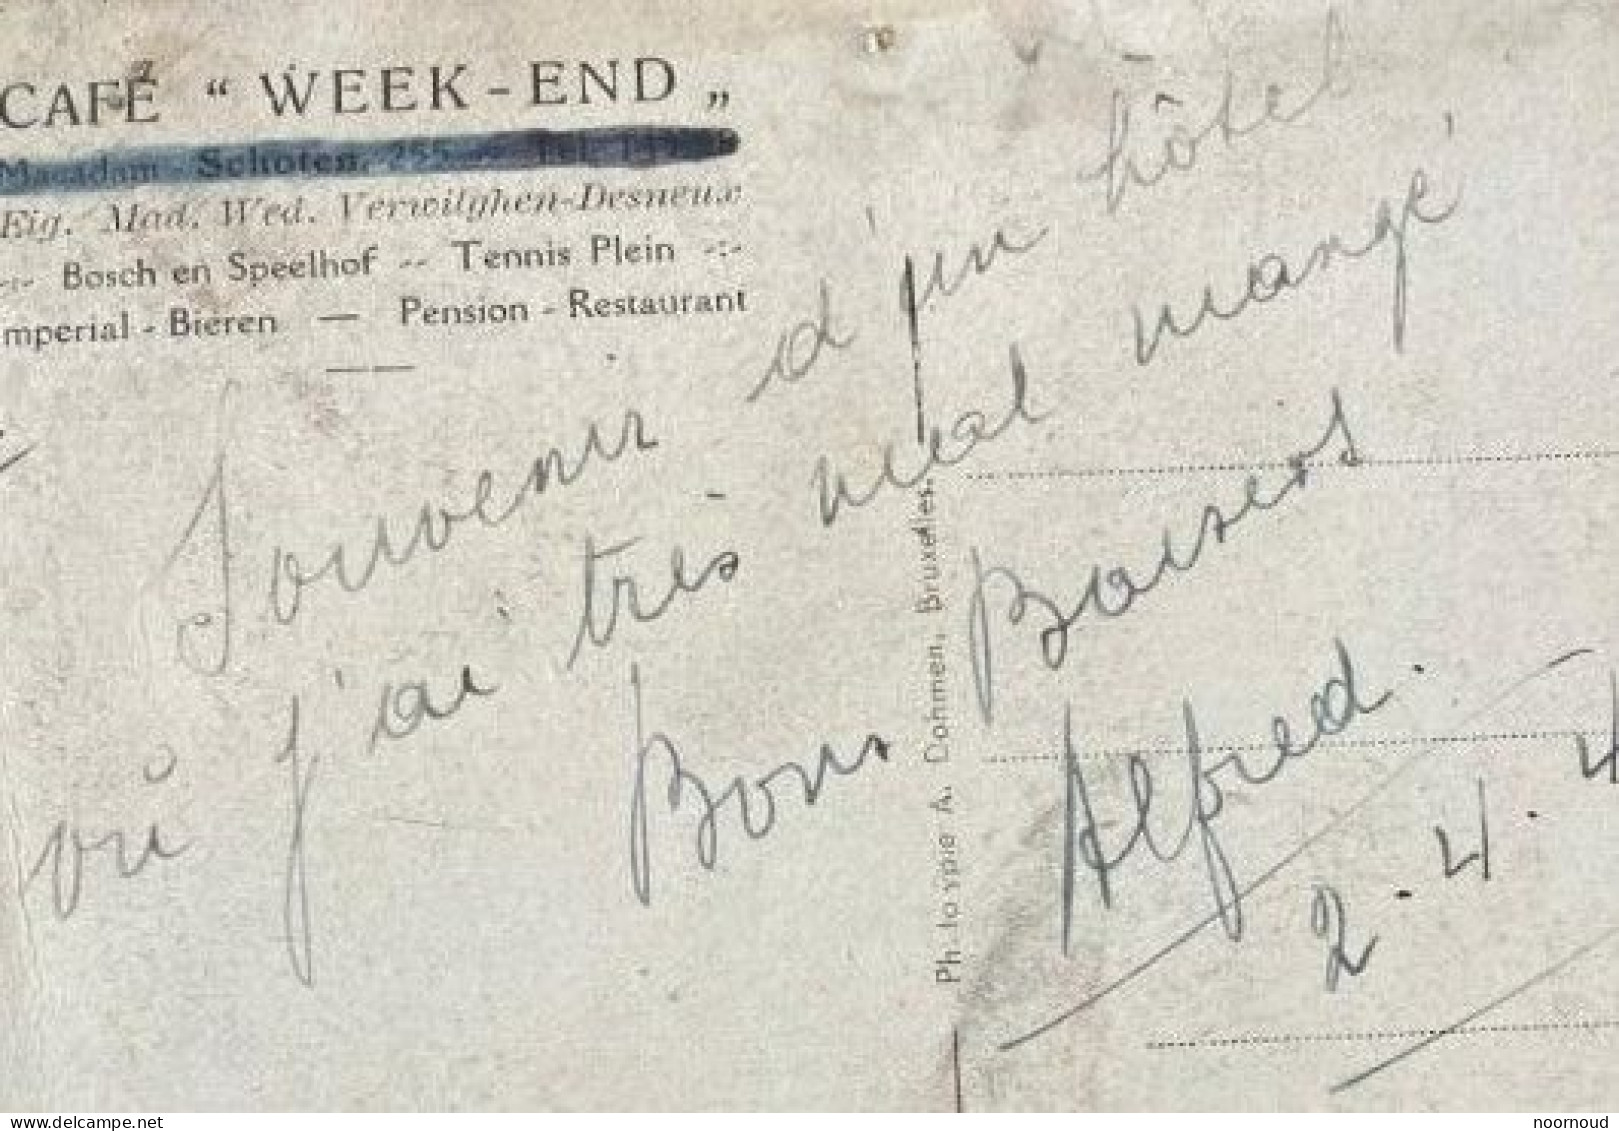 CAFÉ “ WEEK - END „
Macadam - Schoten, 255
Eig. Mad. Wed. Verwilghen-Desneux
-:- Bosch en Speelhof -- Tennis Plein -:-
mperial - Bieren — Pension - Restaurant
Souvenir d'un hôtel
où j'ai très mal mangé
Bons Baisers
Alfred.
2.4.4
Phototypie A. Dohmen, Bruxelles.
delcampe.net
noornoud